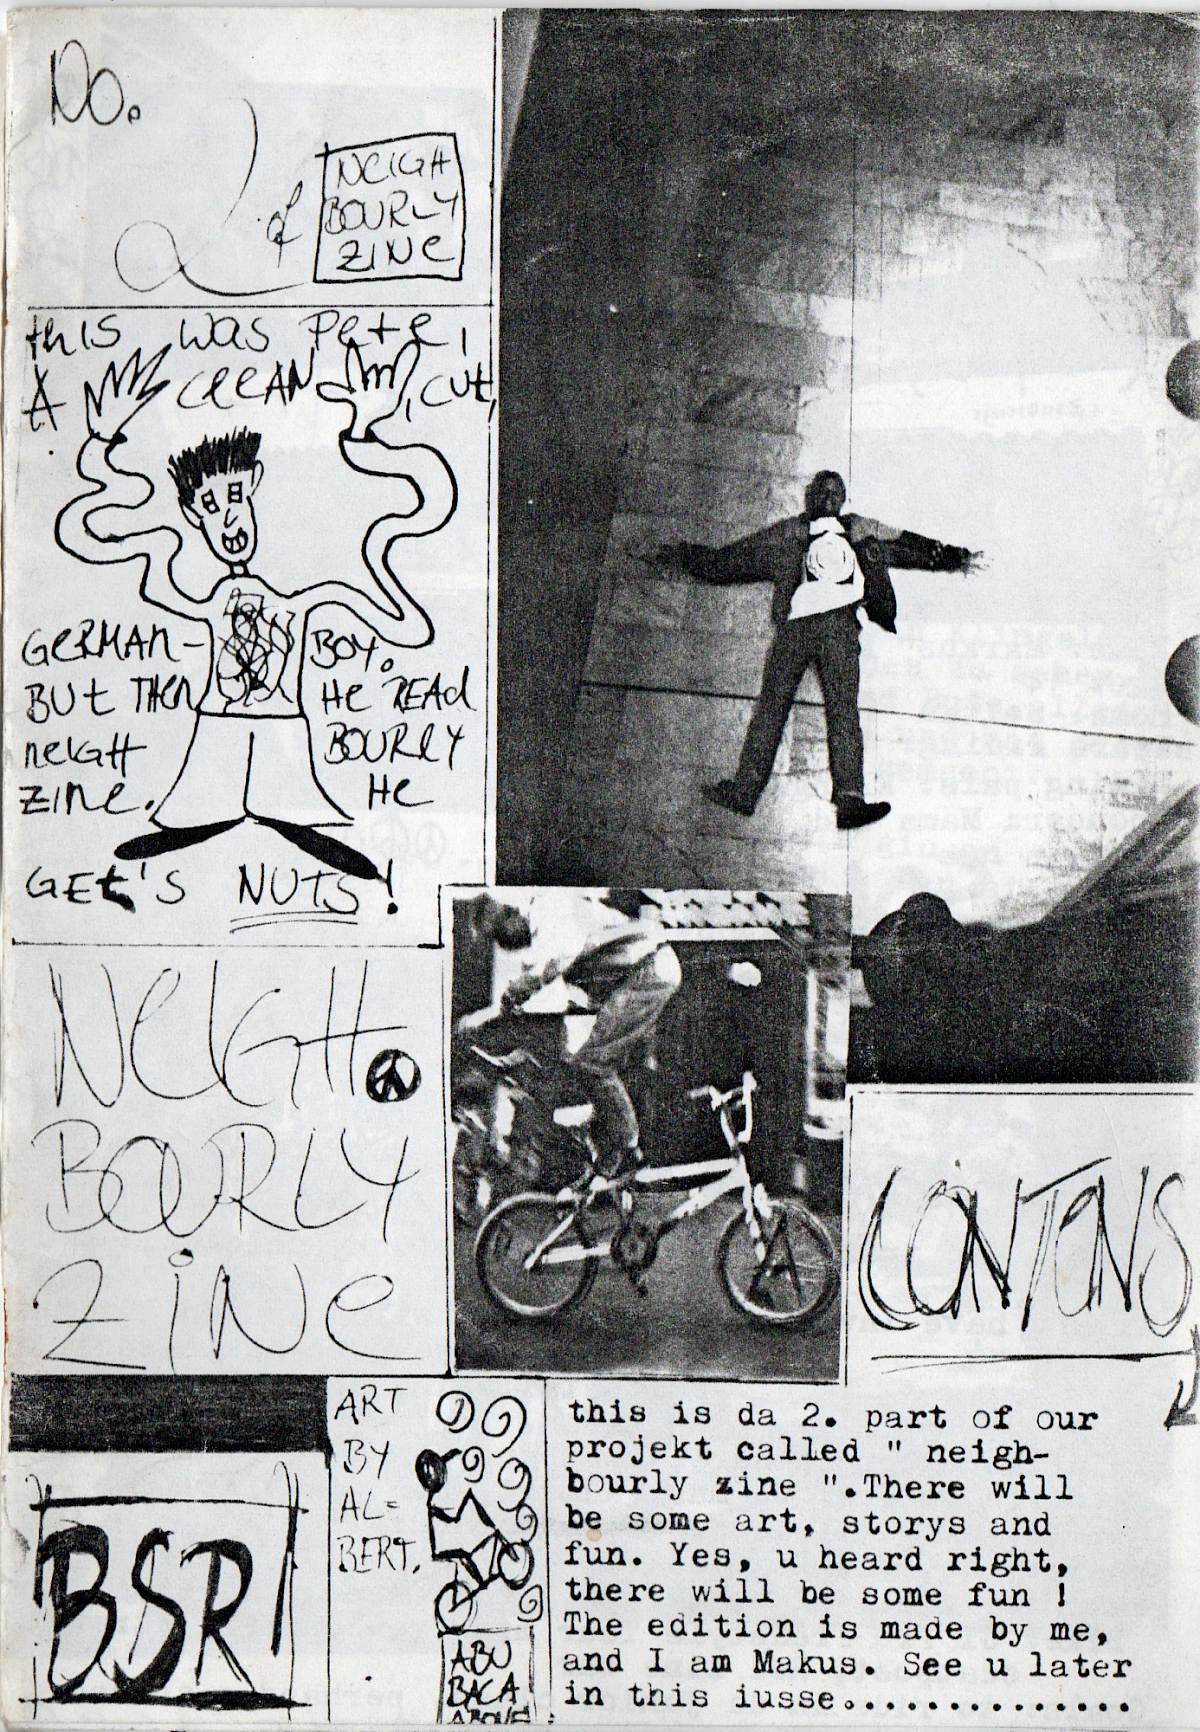 No.
2 of
NEIGH
BOURLY
ZINE
this was Pete,
A CLEAN, CUT,
GERMAN- BOY.
BUt THEN HE READ
neIGH BOURLY
ZINE. He
GEt'S NUTS!
NeIGH.
BOURLY
ZiNe
CONTONS
BSR
ART
BY
AL=
BERT.
ABU
BACA
ABOVE
this is da 2. part of our
projekt called " neigh-
bourly zine ".There will
be some art, storys and
fun. Yes, u heard right,
there will be some fun !
The edition is made by me,
and I am Makus. See u later
in this iusse...............